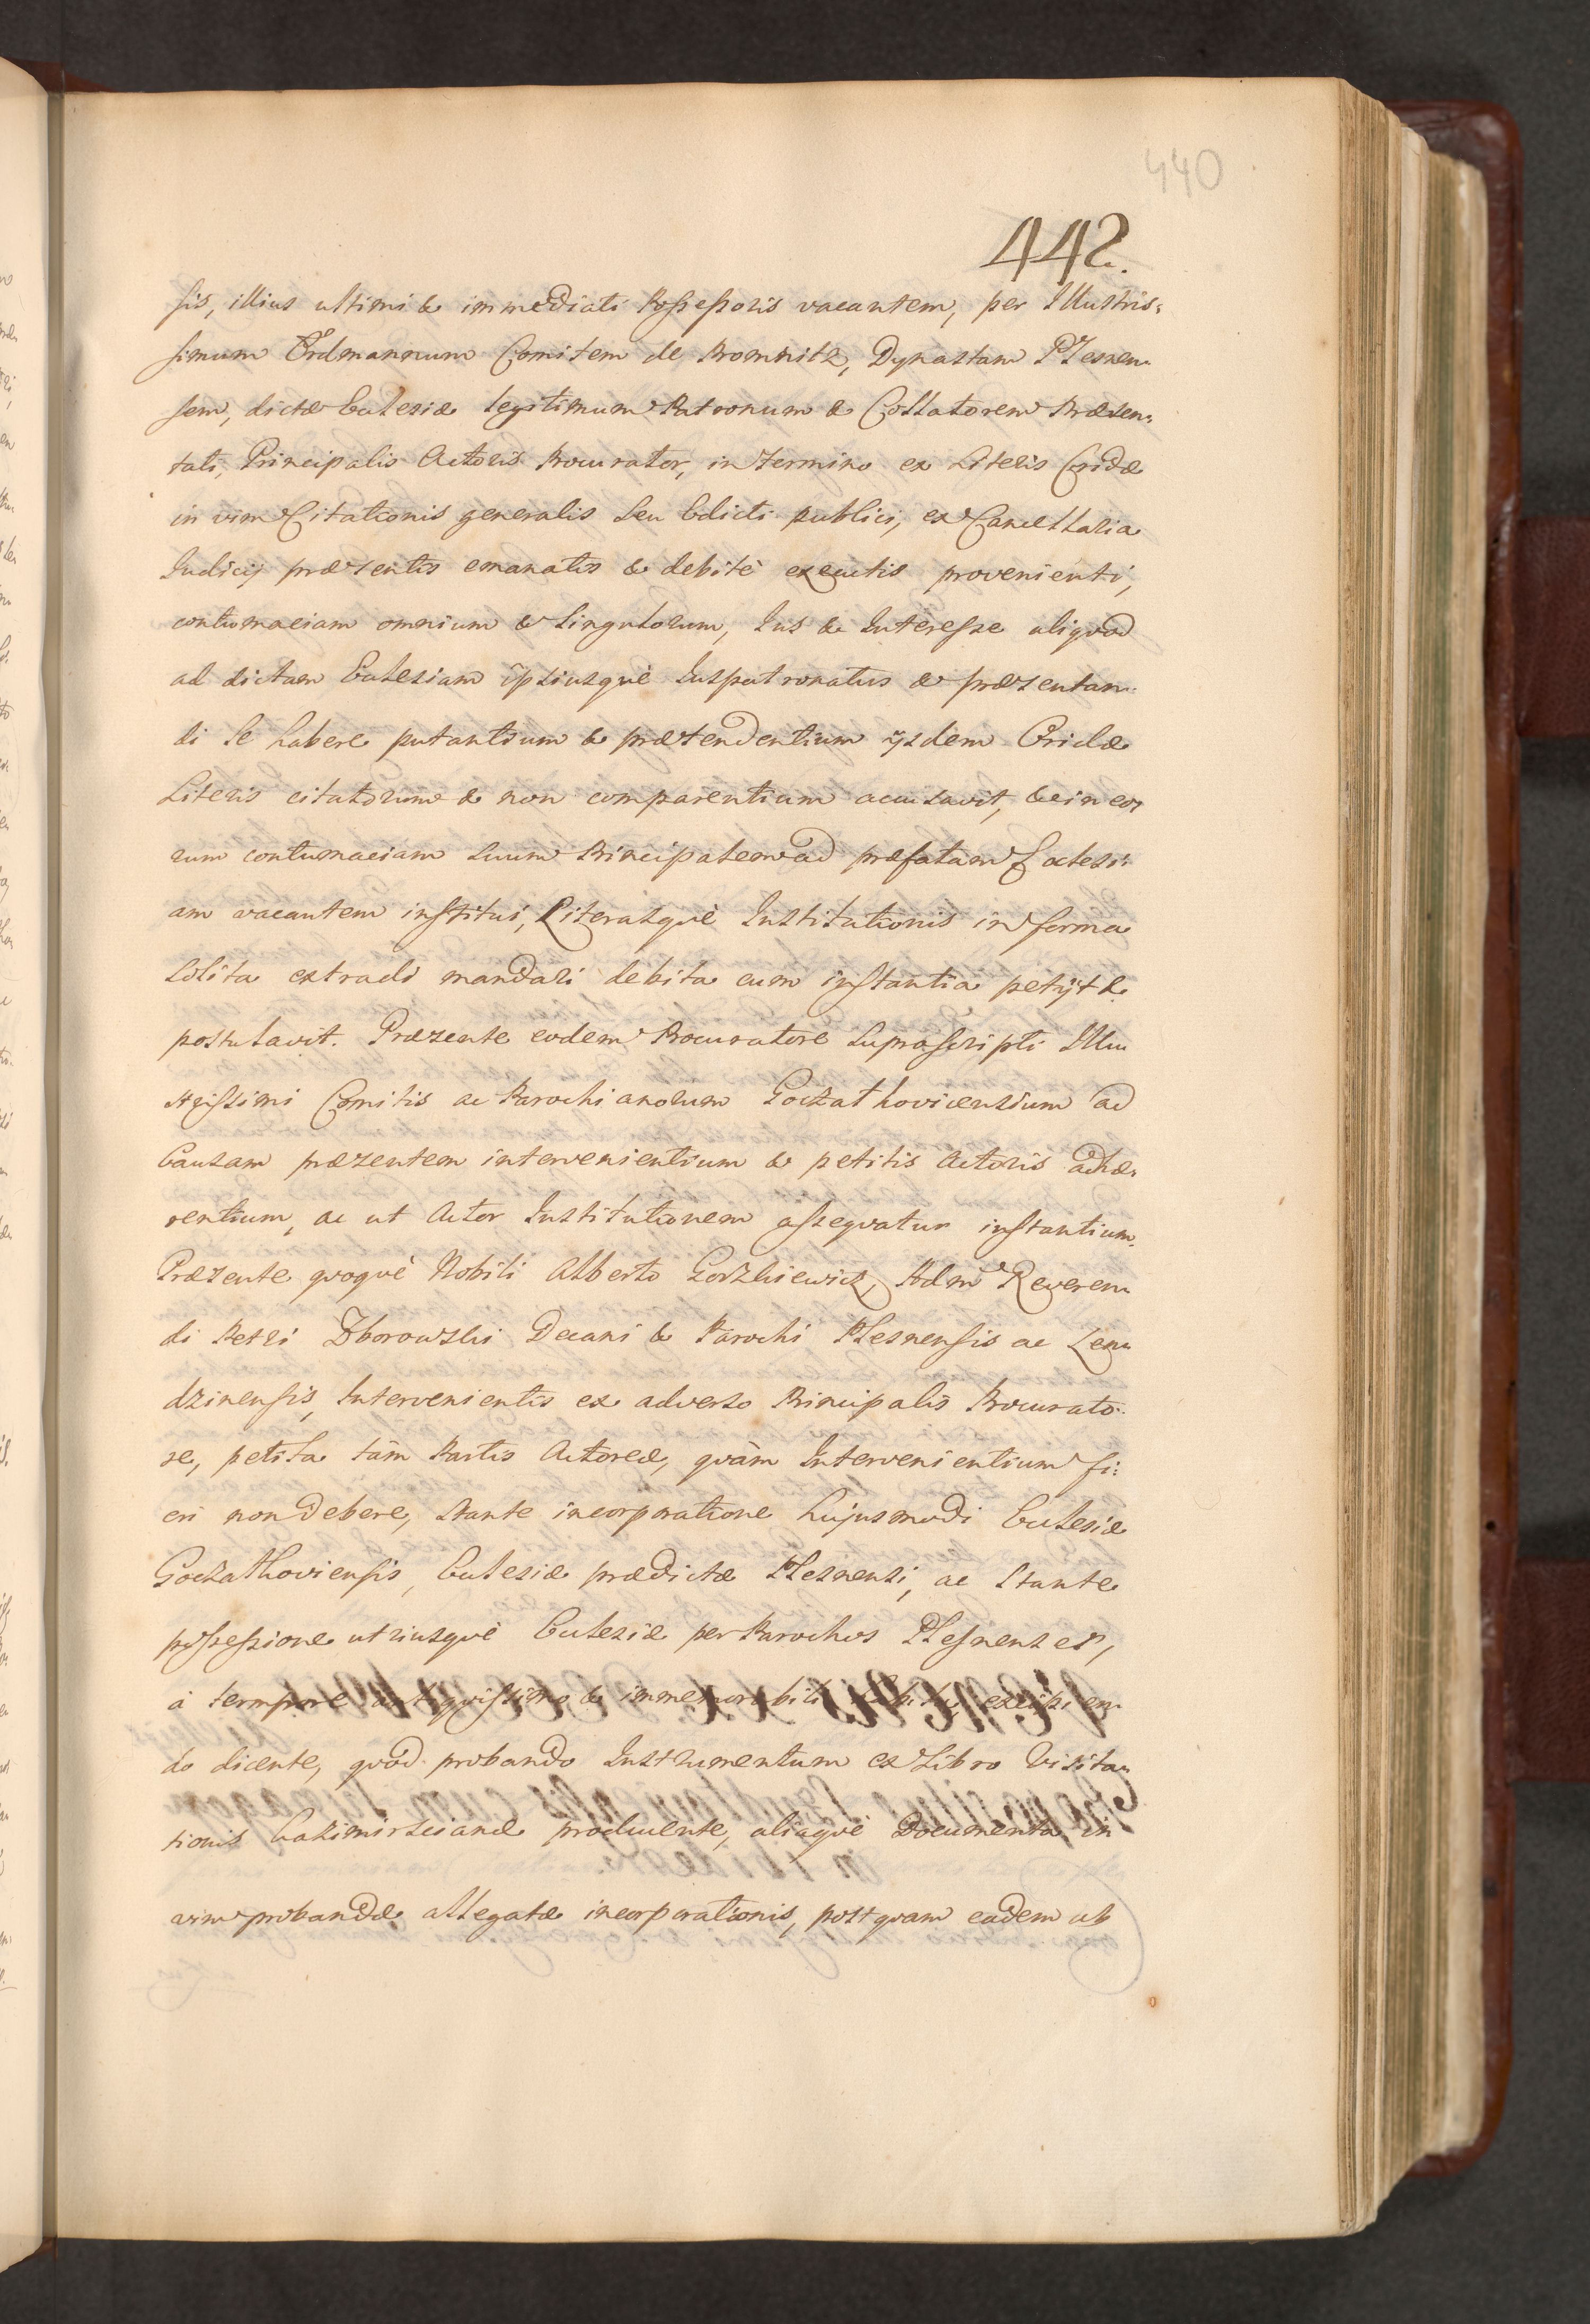 440
442.
sis, illius ultimi & immediati Possessoris vacantem, per Illustris-
simum Erdmannum Comitem de Promnitz, Dynastam Plesnen-
sem, dictæ Ecclesiæ legitimum Patronum & Collatorem Præsen-
tati, Principalis Actoris Procurator, in Termino ex Literis Cridæ
in vim Citationis generalis seu Edicti publici, ex Cancellaria
Iudicij præsentis emanatis & debitè executis provenienti,
contumaciam omnium & Singulorum, Ius & Interesse aliquod
ad dictam Ecclesiam ipsiusquè Iuspatronatus & præsentan-
di se habere putantium & prætendentium ijsdem Cridæ
Literis citatorum & non comparentium accusavit, & in eo-
rum contumaciam Suum Principalem ad præfatam Ecclesi-
am vacantem institui, Literasquè Institutionis in forma
solita extradi mandari debita cum instantia petijt &
postulavit. Præsente eodem Procuratore Suprascripti Illu-
strissimi Comitis ac Parochianorum Goczalkovicensium ad
Causam præsentem intervenientium & petitis Actoris adhæ-
rentium, ac ut Actor Institutionem assequatur instantium.
Præsente quoquè Nobili Alberto Gorzkiewicz, Adm Reveren-
di Petri Zborowski Decani & Parochi Plesnensis ac Len-
dzinensis, Intervenientis ex adverso Principalis Procurato-
re, petita tàm Partis Actoreæ, quàm Intervenientium fi-
eri non debere, stante incorporatione hujusmodi Ecclesiæ
Goczalkoviensis, Ecclesiæ prædictæ Plesnensi, ac stante
possessione utriusquè Ecclesiæ per Parochos Plesnenses,
à tempore antiquissimo & immemorabili habita, excipien-
do dicente, quòd probando Instrumentum ex Libro Visita-
tionis Casimirscianæ producente, aliaquè Documenta in
vim probandæ allegatæ incorporationis, postquam eadem ab